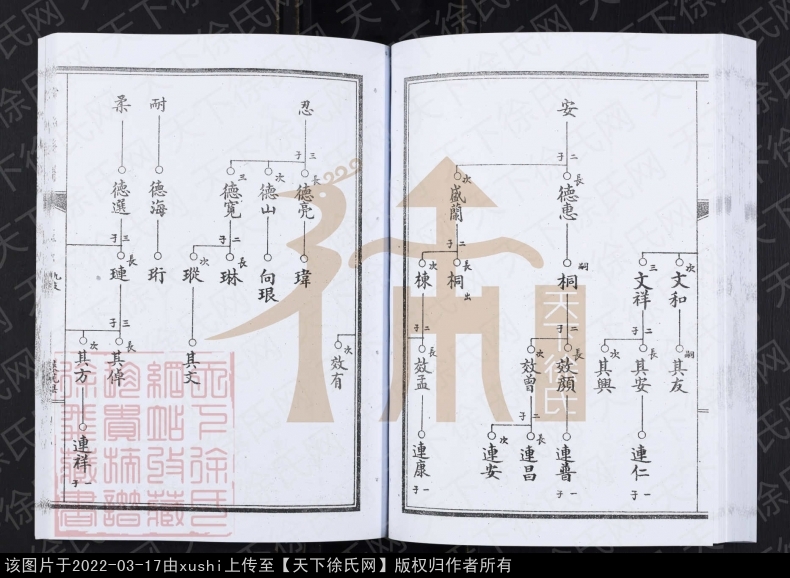 文和
次
嗣
其友
三
文祥
二子
長
其安
次
其興
連仁
一子
安
二子
長
德惠
次
盛蘭
嗣
桐
二子
長
效顏
次
效曾
連普
一子
二子
長
連昌
次
連安
二子
長
桐
出
次
棟
二子
長
效孟
連康
一子
次
效有
忍
三子
長
德亮
次
德山
三
德寬
瑋
向琅
二子
長
琳
次
瑽
其文
耐
德海
珩
柔
德選
三子
長
璉
三子
長
其倬
次
其方
連祥
一子
天下徐氏
天下徐氏网
该图片于2022-03-17由xushi上传至【天下徐氏网】版权归作者所有